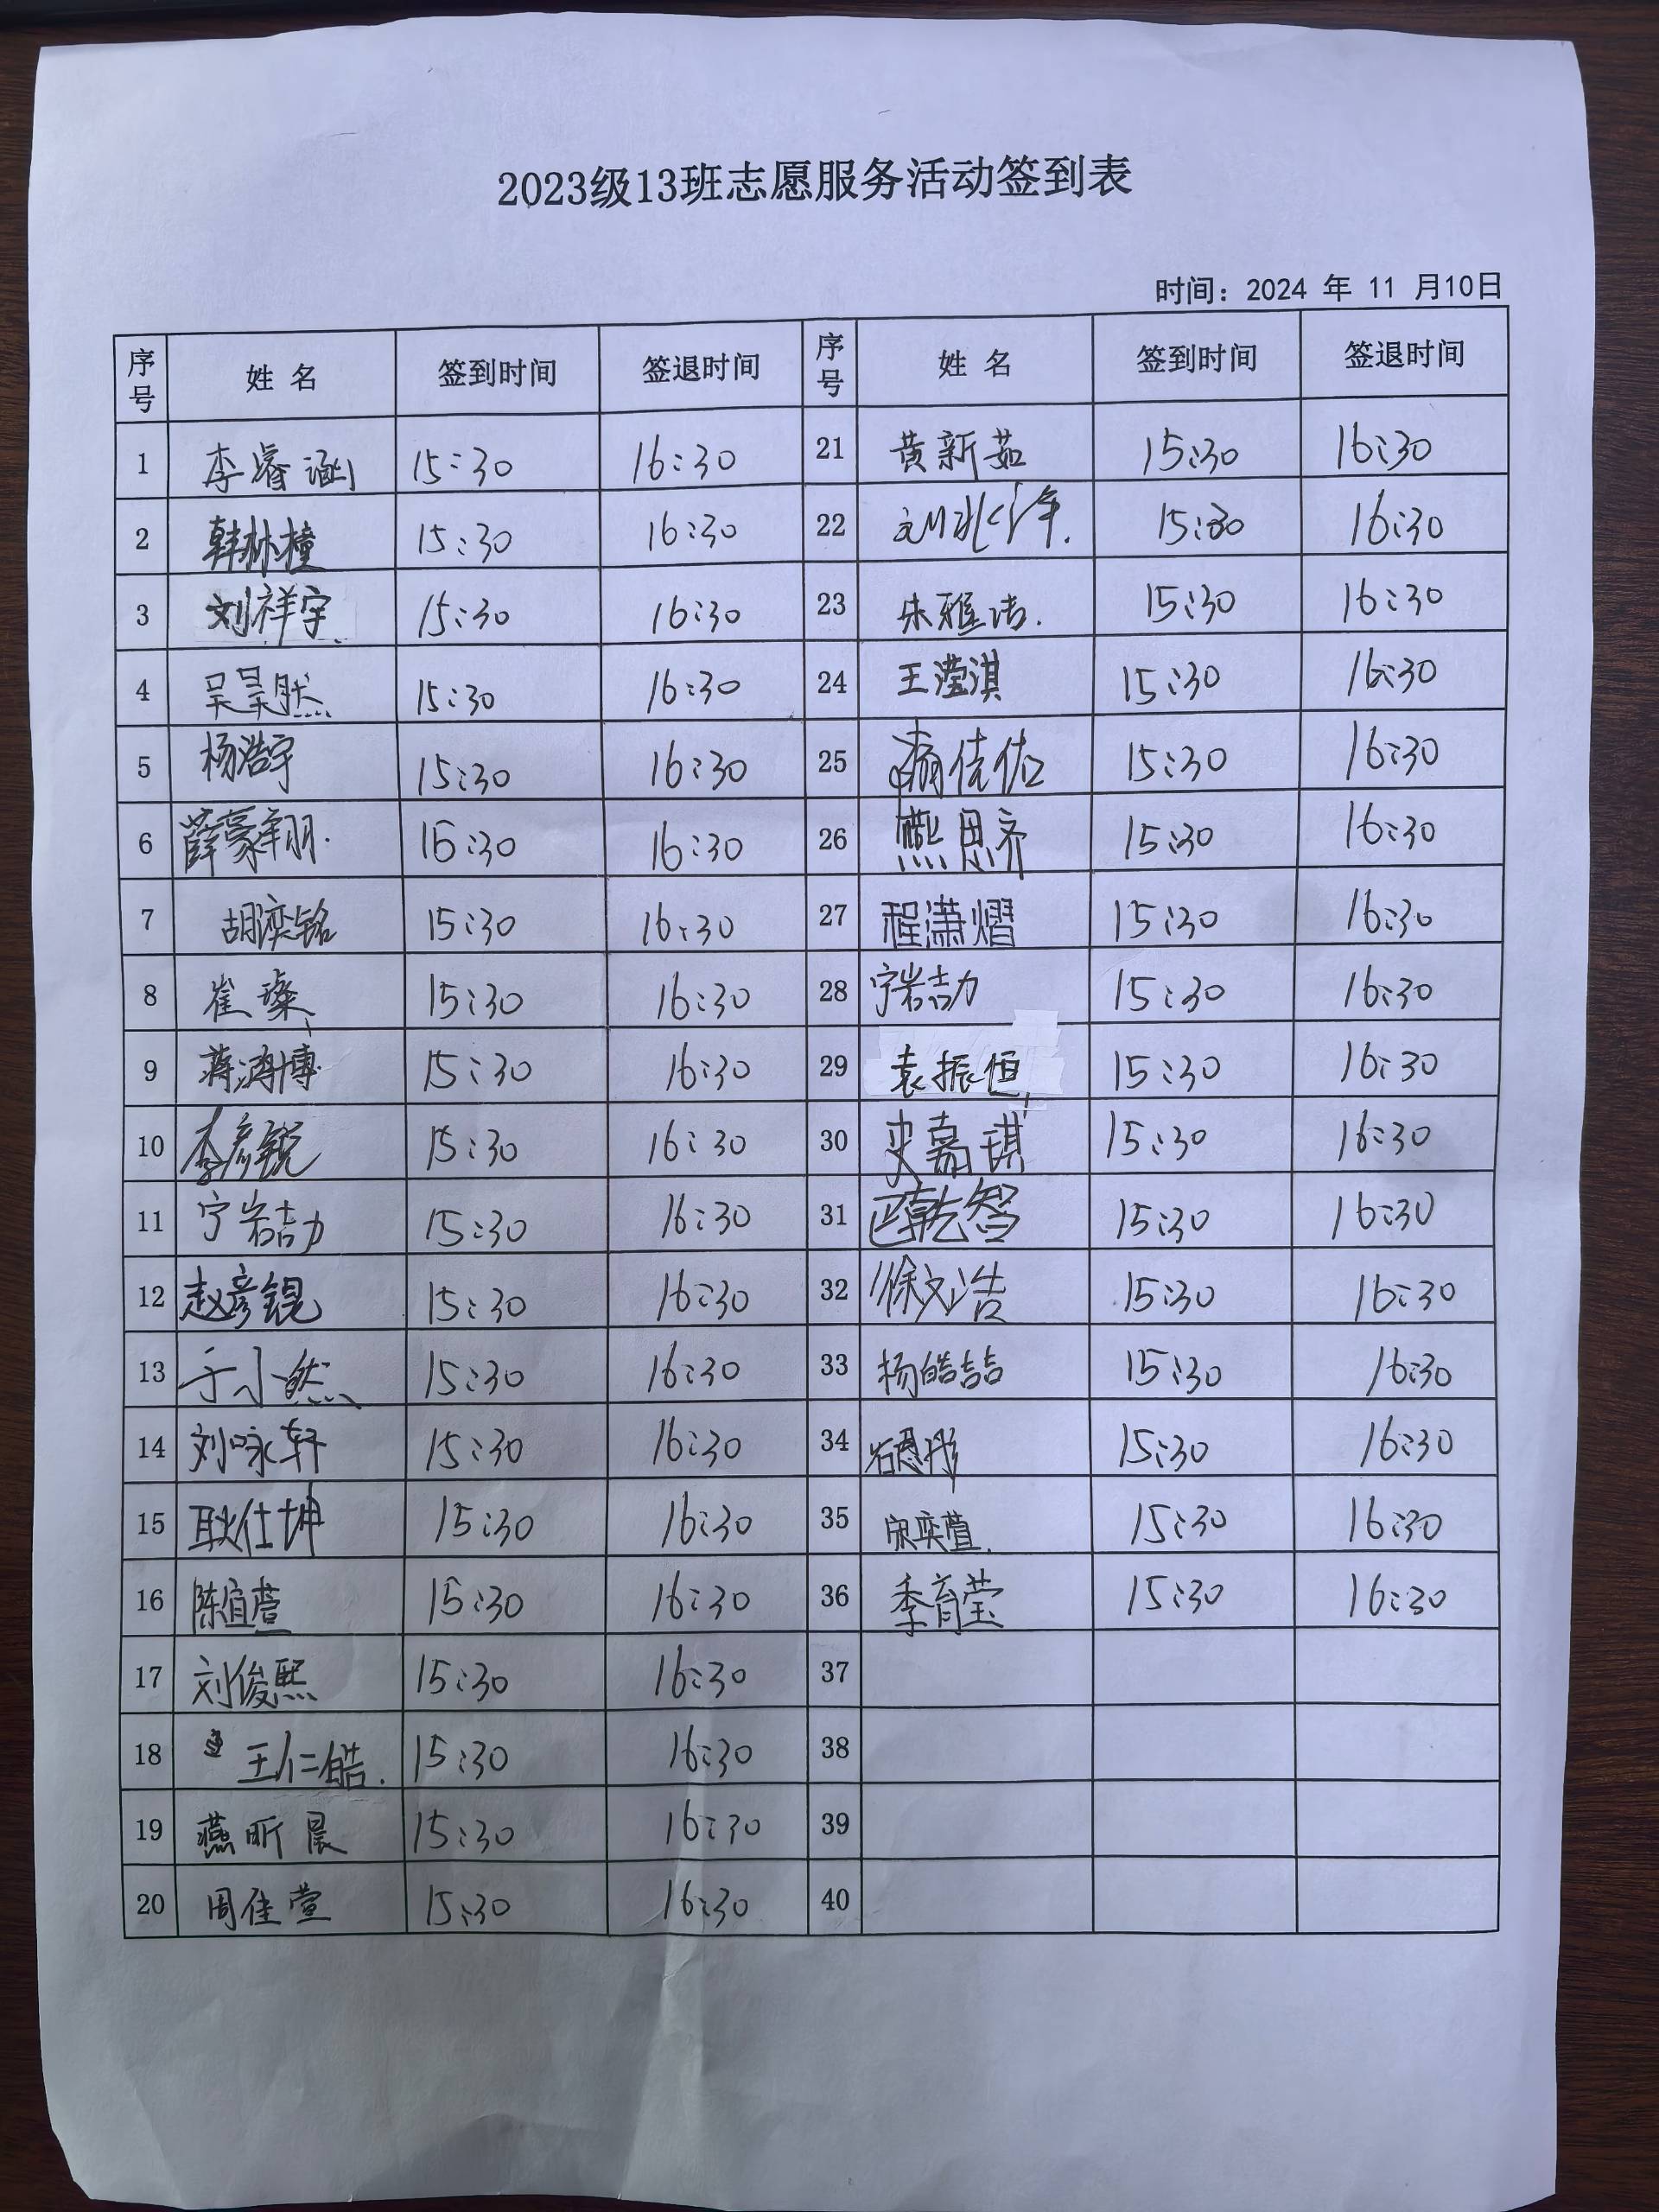 2023级13班志愿服务活动签到表
时间：2024 年 11 月10日
序号 姓 名 签到时间 签退时间 序号 姓 名 签到时间 签退时间
1 李睿涵 15:30 16:30 21 黄新茹 15:30 16:30
2 韩林橦 15:30 16:30 22 15:30 16:30
3 刘祥宇 15:30 16:30 23 朱雅洁. 15:30 16:30
4 吴昊朕 15:30 16:30 24 王滢淇 15:30 16:30
5 杨浩宇 15:30 16:30 25 佳佑 15:30 16:30
6 薛豪翔. 16:30 16:30 26 熊思齐 15:30 16:30
7 胡滦铭 15:30 16:30 27 程潇熠 15:30 16:30
8 崔璨 15:30 16:30 28 宁岩劼 15:30 16:30
9 蒋鸿博 15:30 16:30 29 袁振恒 15:30 16:30
10 李彦锐 15:30 16:30 30 史嘉琪 15:30 16:30
11 宁岩劼 15:30 16:30 31 乾智 15:30 16:30
12 赵彦锟 15:30 16:30 32 徐文浩 15:30 16:30
13 于小然 15:30 16:30 33 杨皓喆 15:30 16:30
14 刘咏轩 15:30 16:30 34 石恩彤 15:30 16:30
15 耿仕坤 15:30 16:30 35 宋奕萱. 15:30 16:30
16 陈宣萱 15:30 16:30 36 季育莹 15:30 16:30
17 刘俊熙 15:30 16:30 37
18 王仁皓. 15:30 16:30 38
19 燕昕晨 15:30 16:30 39
20 周佳萱 15:30 16:30 40